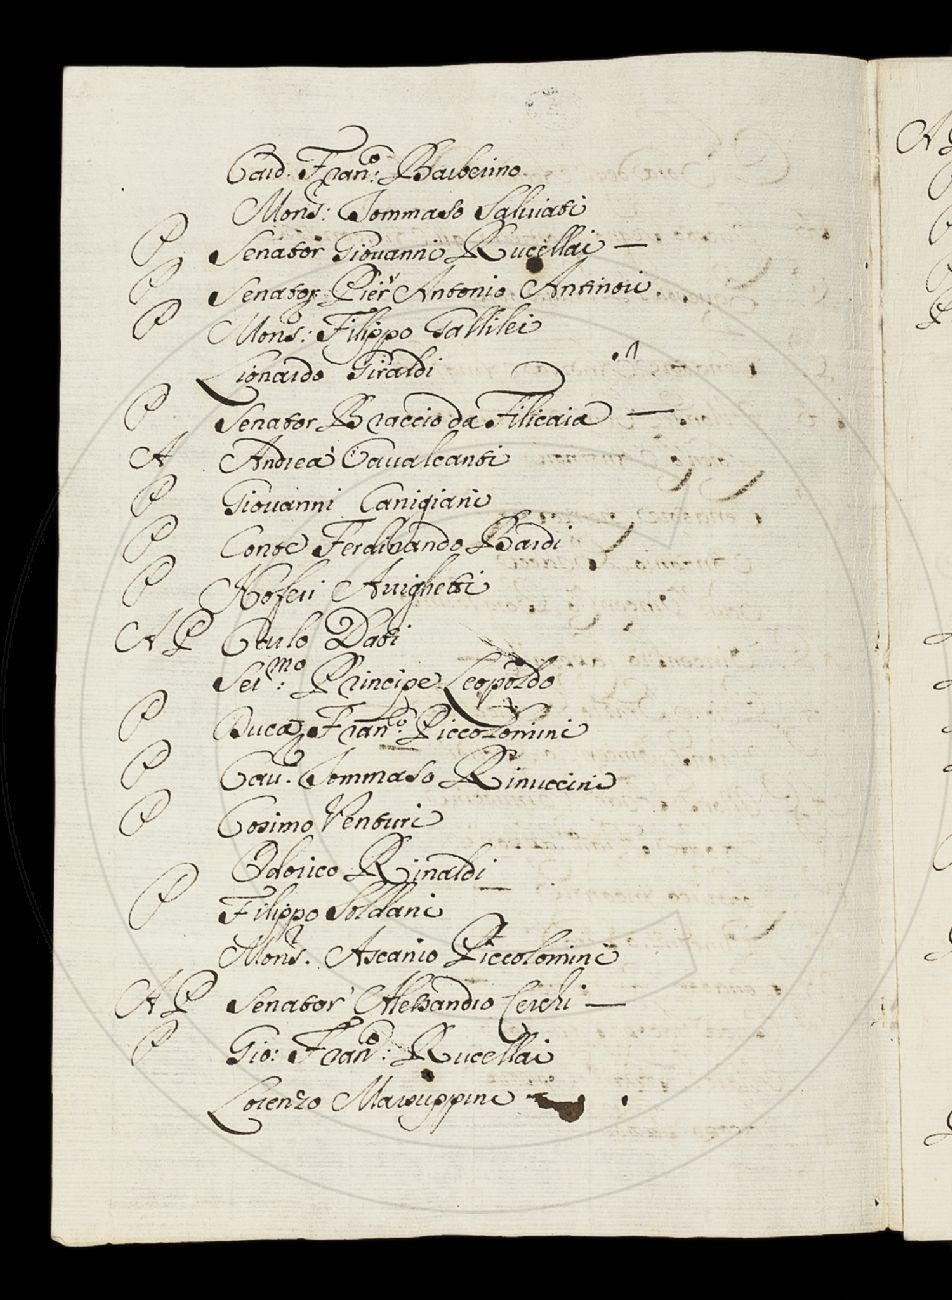 Card. Fran.co: Barberino
Mons.r: Tommaso Salviati
P Senator Giovanni Rucellai —
P Senator: Pier Antonio Antinori
P Mons.r: Filippo Gallilei
Lionardo Giraldi
P Senator Braccio da Filicaia —
A Andrea Cavalcanti
P Giovanni Canigiani
P Conte Ferdinando Bardi
P Noferi Arrighetti
A P Carlo Dati
Ser.mo: Principe Leopoldo
P Duca Fran.co: Piccolomini
P Cav. Tommaso Rinuccini
P Cosimo Venturi
Odorico Rinaldi
P Filippo Soldani
Mons.r. Ascanio Piccolomini
A P Senator Alessandro Cerchi —
P Gio: Fran.co: Rucellai
Lorenzo Marsuppini